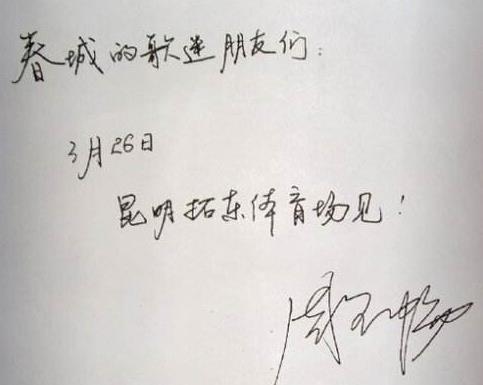 春城的歌迷朋友们：
3月26日
昆明拓东体育场见！
周笔畅